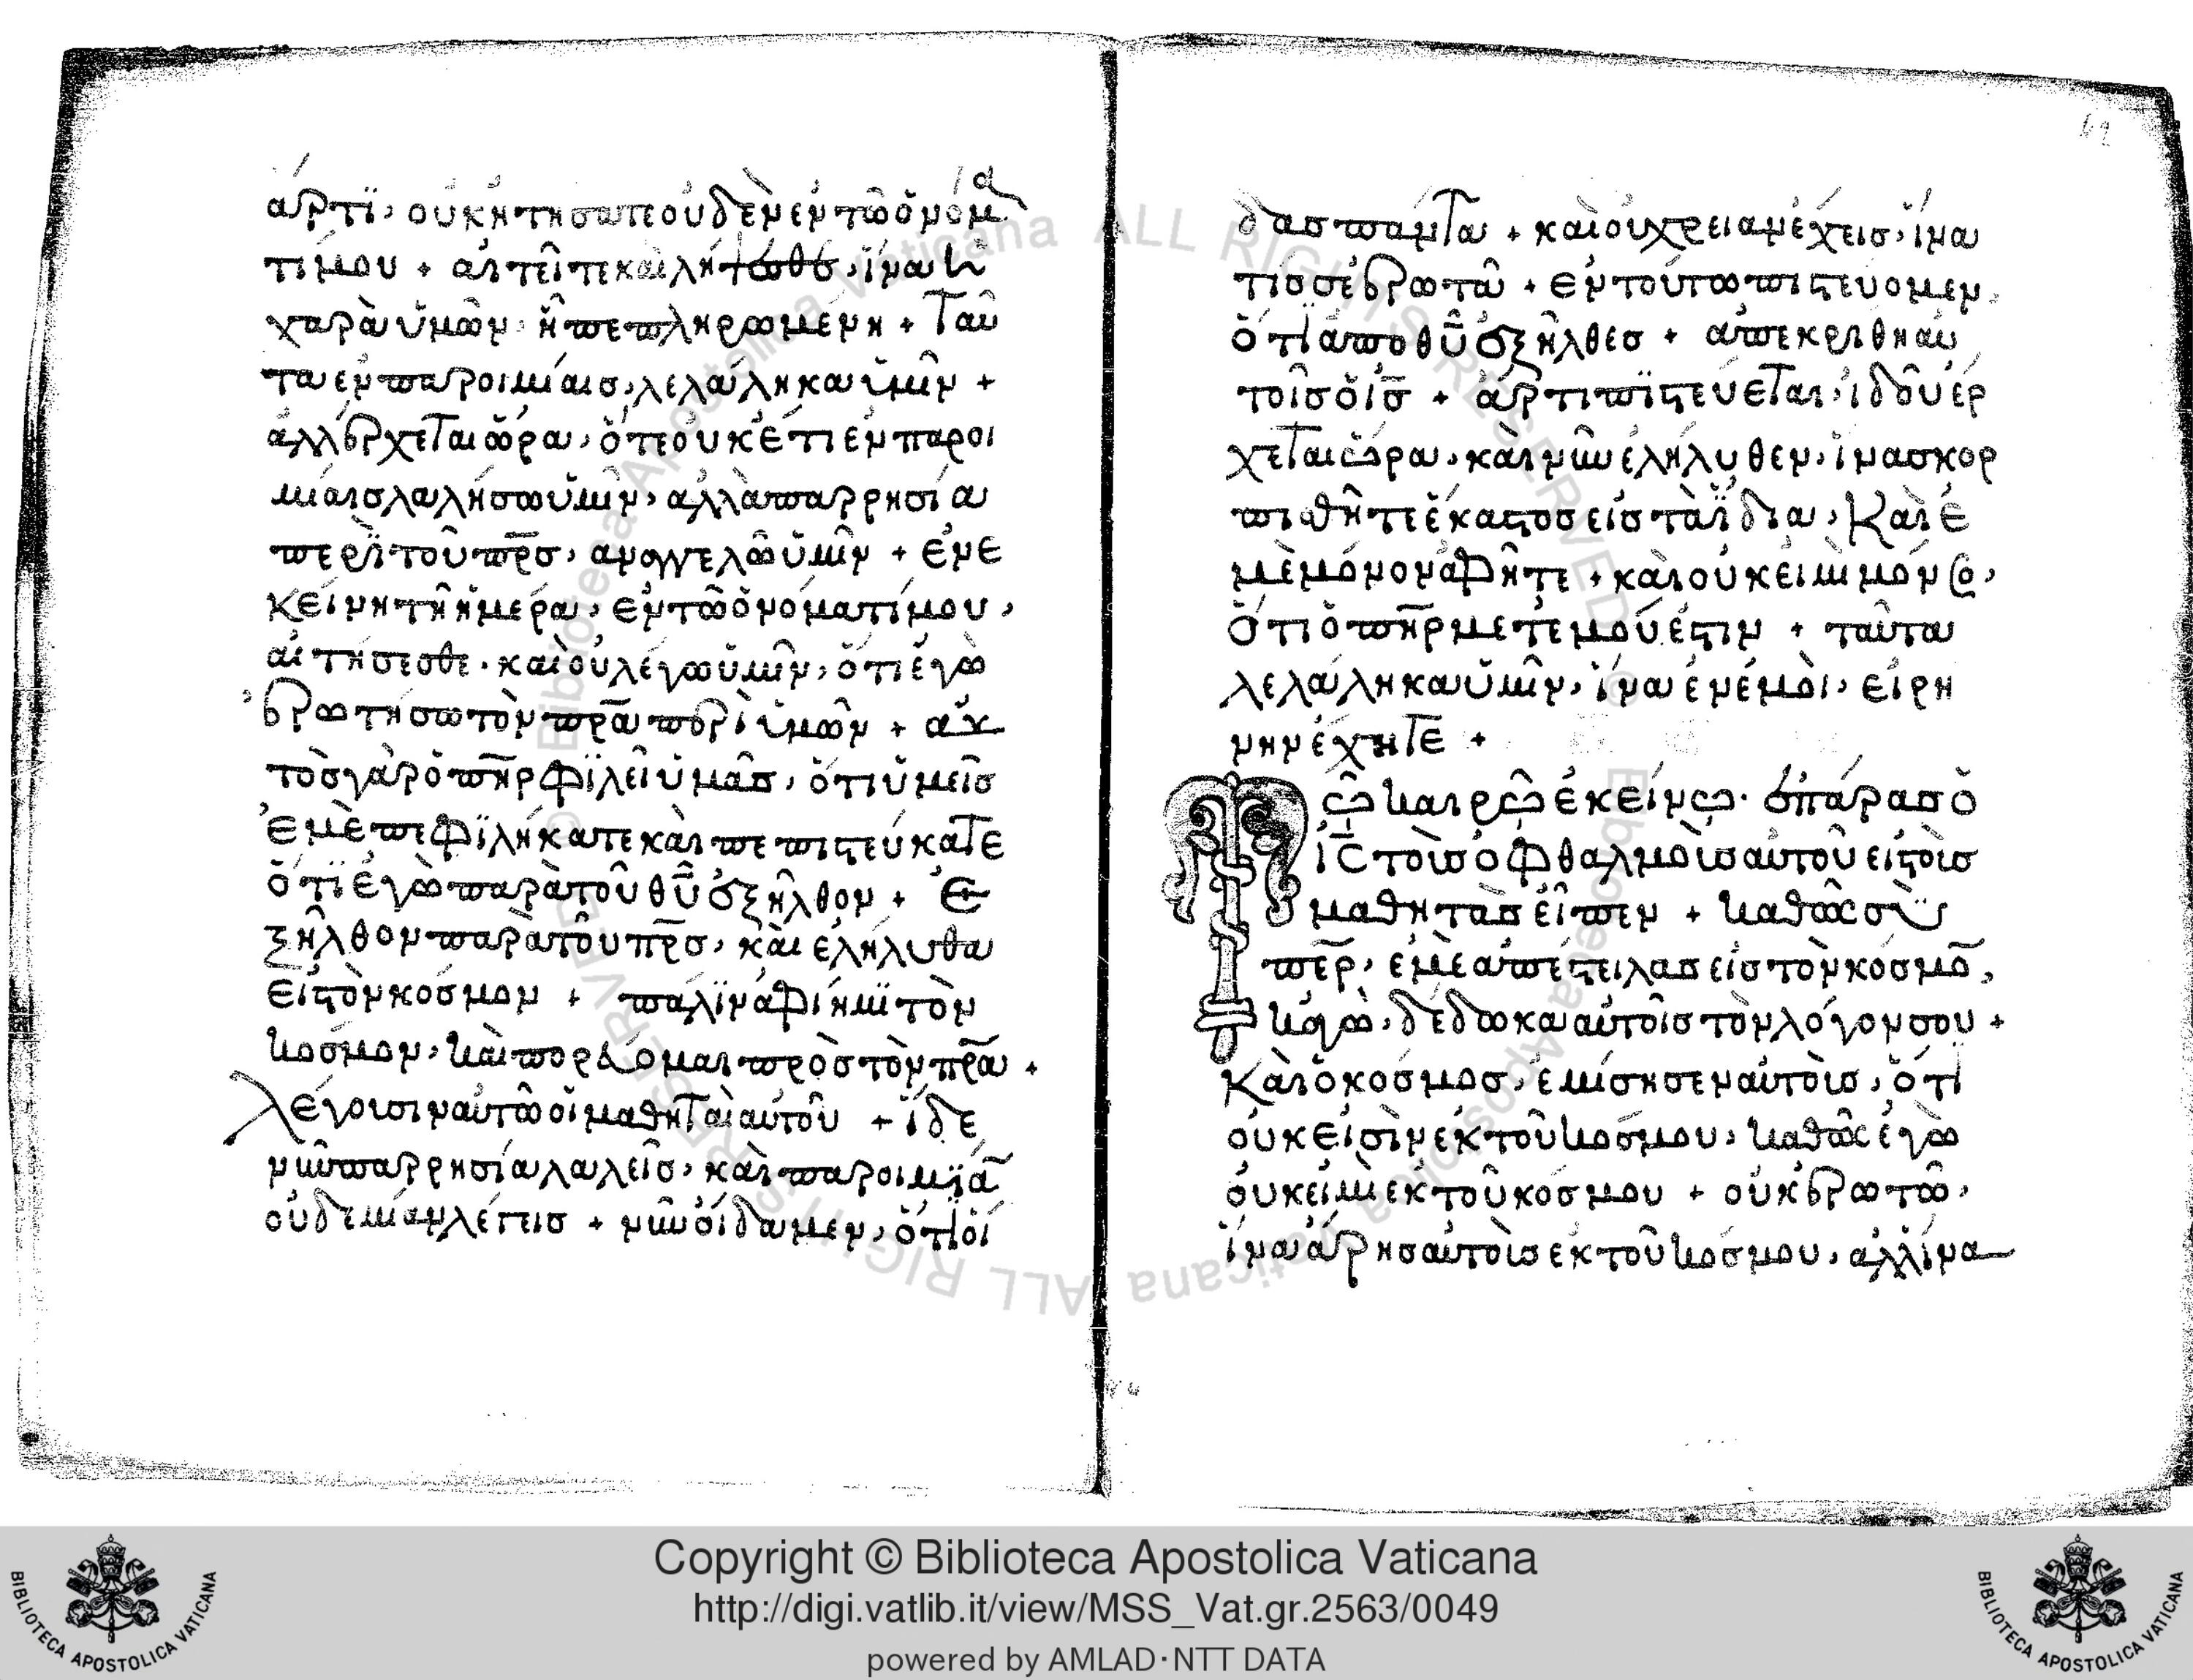 ἄρτϊ, οὐκ ἠτήσαται οὐδὲν ἐν τῶ ὀνόμα
τί μου + αἰτεῖτε καὶ λήψεσθε, ἵνα ἡ
χαρὰ ὑμῶν ἦ πεπληρωμένη + Ταῦ
τα ἐν παροιμίαις, λελάληκα ὑμῖν +
ἀλλ ἔρχεται ὥρα, ὅτε οὐκέτι ἐν παροι
μίαις λαλήσω ὑμῖν, ἀλλὰ παρρησία
περὶ τοῦ πρς, ἀναγγελῶ ὑμῖν + ἐν ἐ
κείνη τῆ ἡμέρα, ἐν τῶ ὀνόματί μου,
αἰτήσεσθε. καὶ οὐ λέγω ὑμῖν, ὅτι ἐγὼ
ἐρωτήσω τὸν πρα περὶ ὑμῶν + αὐ
τὸς γὰρ ὁ πηρ φϊλεῖ ὑμᾶς, ὅτι ὑμεῖς
ἐμὲ πεφϊλήκατε καὶ πεπιστεύκατε
ὅτϊ ἐγὼ παρὰ τοῦ θυ ἐξῆλθον + Ἐ
ξῆλθον παρὰ τοῦ πρς, καὶ ἐλήλυθα
εἰς τὸν κόσμον + παλϊν ἀφίημϊ τὸν
κόσμον, καὶ πορεύομαι πρὸς τὸν πρα +
λέγουσιν αὐτῶ οἱ μαθηταὶ αὐτοῦ + ἴδε
νῦν παρρησία λαλεῖς, καὶ παροιμϊᾱ
οὐδεμίαν λέγεις + νῦν οἴδαμεν, ὅτι οἶ
δας πάντα + καὶ οὐ χρείαν έχεις, ἵνα
τίς σε ἐρωτᾶ + ἐν τούτω πιστεύομεν
ὅτι ἀπο θυ ἐξῆλθες + ἀπεκρίθη αὐ
τοῖς ὁ ις + ἄρτι πϊστεύεται, ἰδοῦ ἔρ
χεται ὥρα, καὶ νῦν ἐλήλυθεν, ἵνα σκορ
πισθῆτε ἕκαστος εἰς τὰ ἴδια, Καὶ ἐ
μὲ μόνον ἀφῆτε + καὶ οὐκ εἰμὶ μόνος,
ὅτι ὁ πηρ μετ ἐμοῦ ἐστιν + ταῦτα
λελάληκα ὑμῖν, ἵνα ἐν ἐμὸι, εἰρή
νην έχητε +
Τῶ καιρῶ ἐκείνω. ἐπάρας ὁ
ις τοὺς ὀφθαλμοὺς αὐτοῦ εἰς τοὺς
μαθητὰς εἶπεν + καθὼς σὺ
περ, ἐμὲ ἀπέστειλας εἰς τὸν κόσμō,
κἀγὼ, δέδωκα αὐτοῖς τὸν λόγον σου +
Καὶ ὁ κόσμος, ἐμίσησεν αὐτοὺς, ὅτι
οὐκ εἰσὶν ἐκ τοῦ κόσμου, καθὼς ἐγὼ
οὐκ εἰμὶ ἐκ τοῦ κόσμου + οὐκ ἐρωτῶ,
ἵνα άρης αὐτοὺς ἐκ τοῦ κόσμου, ἀλλ ἵνα
Copyright © Biblioteca Apostolica Vaticana
http://digi.vatlib.it/view/MSS_Vat.gr.2563/0049
powered by AMLAD·NTT DATA
BIBLIOTECA APOSTOLICA VATICANA
BIBLIOTECA APOSTOLICA VATICANA